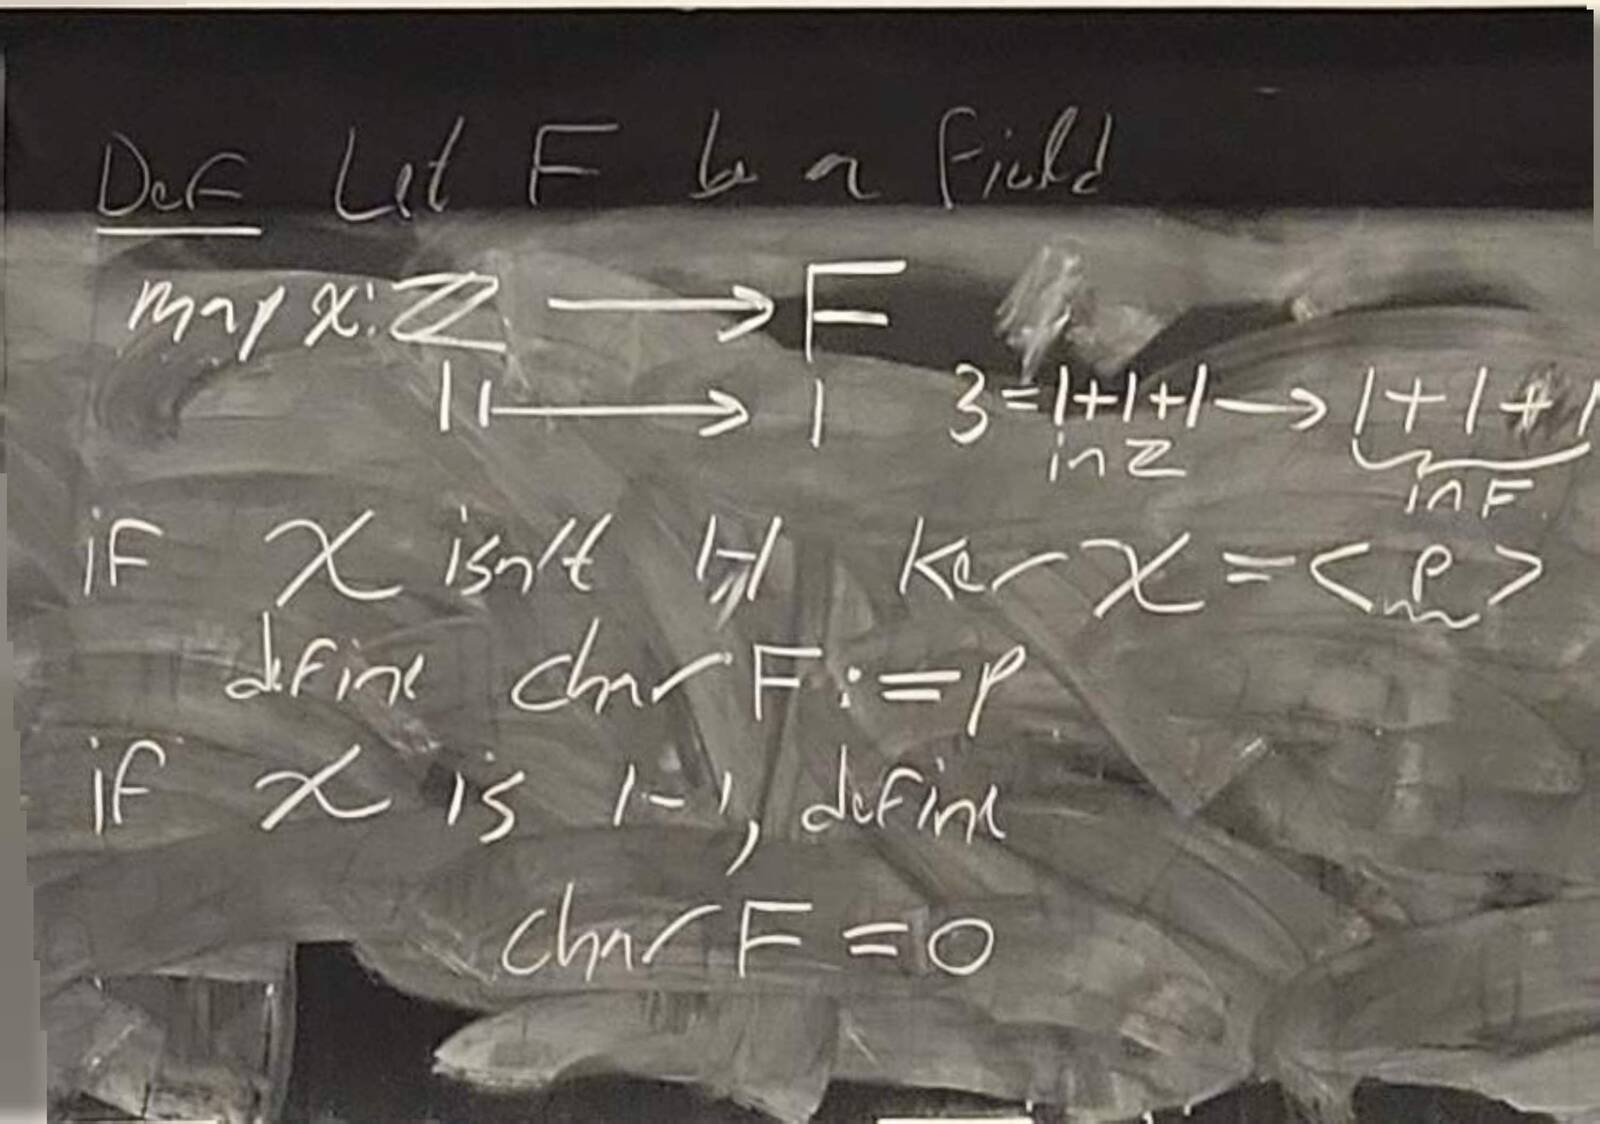 Def Let F be a field
map χ: ℤ → F
1 ↦ 1 3=1+1+1 → 1+1+1
in ℤ in F
if χ isn't 1-1, Ker χ = <p>
define char F := p
if χ is 1-1, define
char F = 0